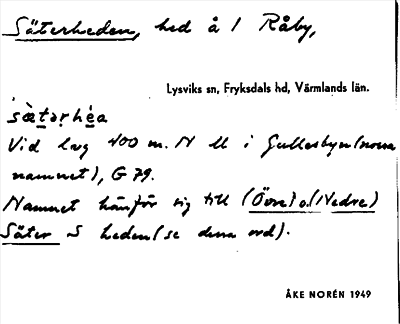 Säterheden, hed å 1 Råby,
Lysviks sn, Fryksdals hd, Värmlands län.
'sὰtərhéa
Vid lag 400 m. N ll i Gullesbyn (norra
namnet), G 79.
Namnet hänför sig till (Övre) o. (Nedre)
Säter S heden (se dessa ord).
ÅKE NORÉN 1949